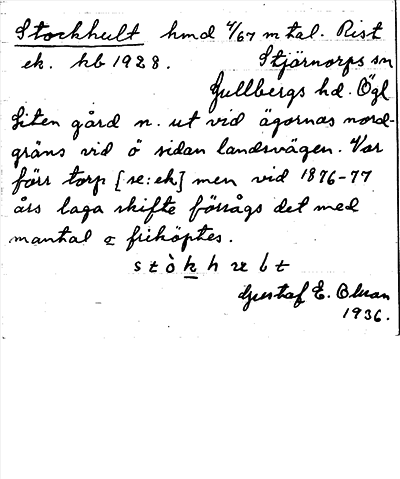 Stockhult hmd 4/67 mtal. Rist
ek. kb 1928. Stjärnorps sn
Gullbergs hd. Ögl
Liten gård n. ut vid ägornas nord-
gräns vid ö sidan landsvägen. Var
förr torp [se: ek] men vid 1876-77
års laga skifte försågs det med
mantal & friköptes.
stòkhult
Gustaf E. Olsson
1936.